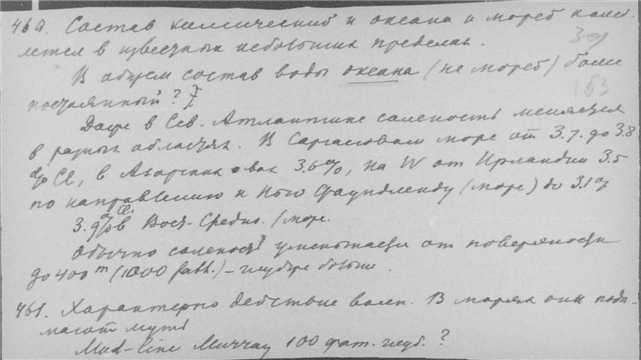 460. Состав химический и океана и морей колеб
лется в известных небольших пределах.
В общем состав воды океана (не морей) более
постоянный?
Даже в Сев. Атлантике соленость меняется
в разных областях. В Саргассовом море от 3.7. до 3.8
% Cl, в Азорских о-вах 3.6%, на W от Ирландии 3.5
по направлению к Нью Фаундленду (море) до 3.1%
3.9% в Вост. Средиз. /море.
Обычно соленость уменьшается от поверхности
до 400 m (1000 fath.) – глубже больше.
461. Характерно действие волн. В морях они
мают муть
Mud-line Миррау 100 фат. глуб. ?
163